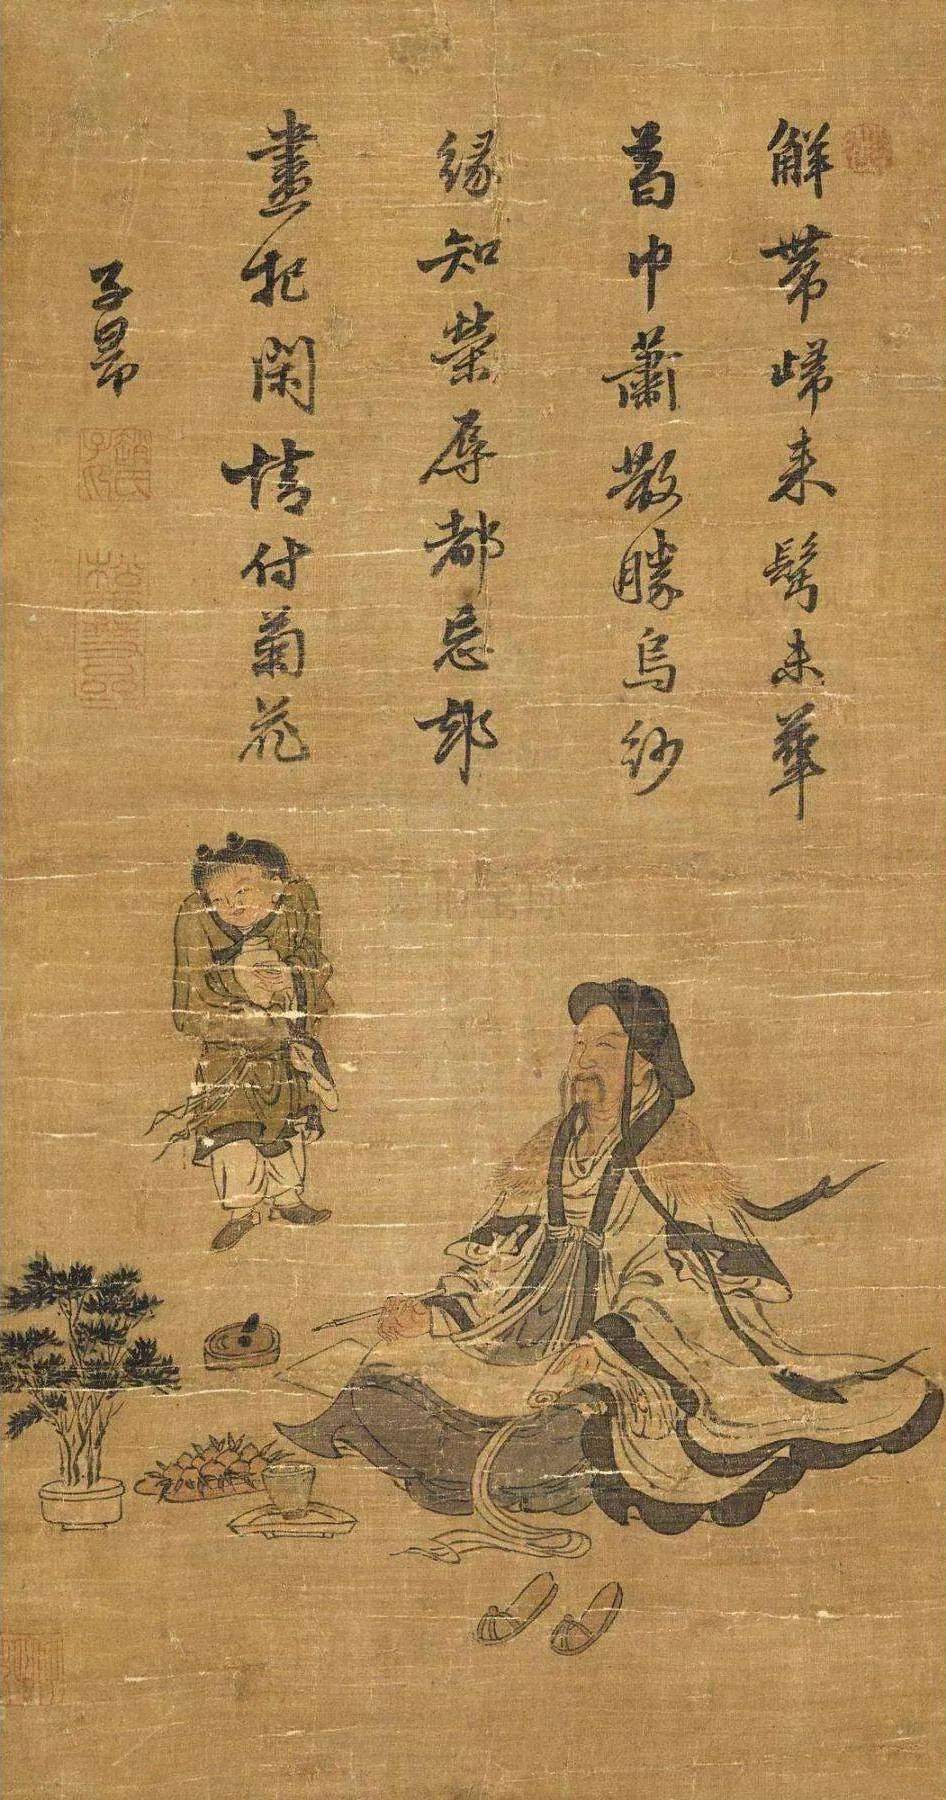 觧帶歸来鬢未華
葛巾蕭散勝烏紗
緣知榮辱都忘却
盡把閑情付菊花
子昂